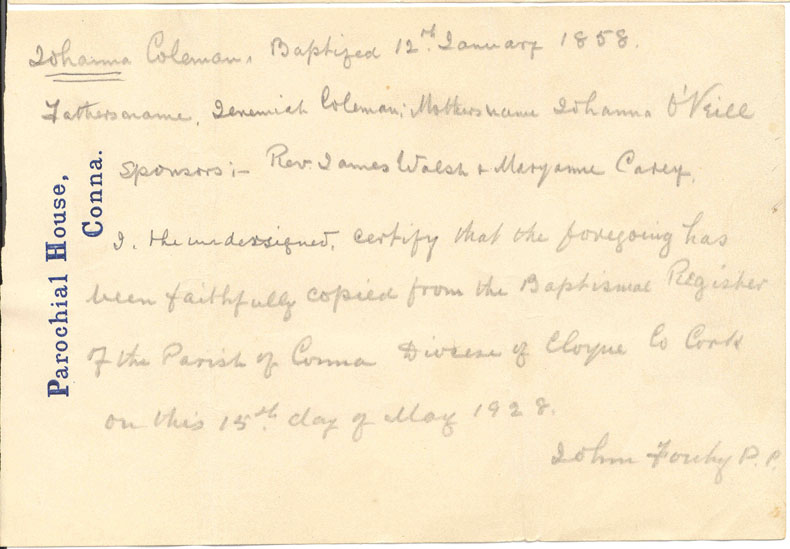 Johanna Coleman, Baptized 12th January 1858.
Fathers name, Jeremiah Coleman; Mothers name Johanna O'Neill
Sponsors:- Rev. James Walsh & Maryanne Carey.
I, the undersigned, certify that the foregoing has
been faithfully copied from the Baptismal Register
of the Parish of Conna Diocese of Cloyne Co Cork
on this 15th day of May 1928.
John P.P.
Parochial House,
Conna.